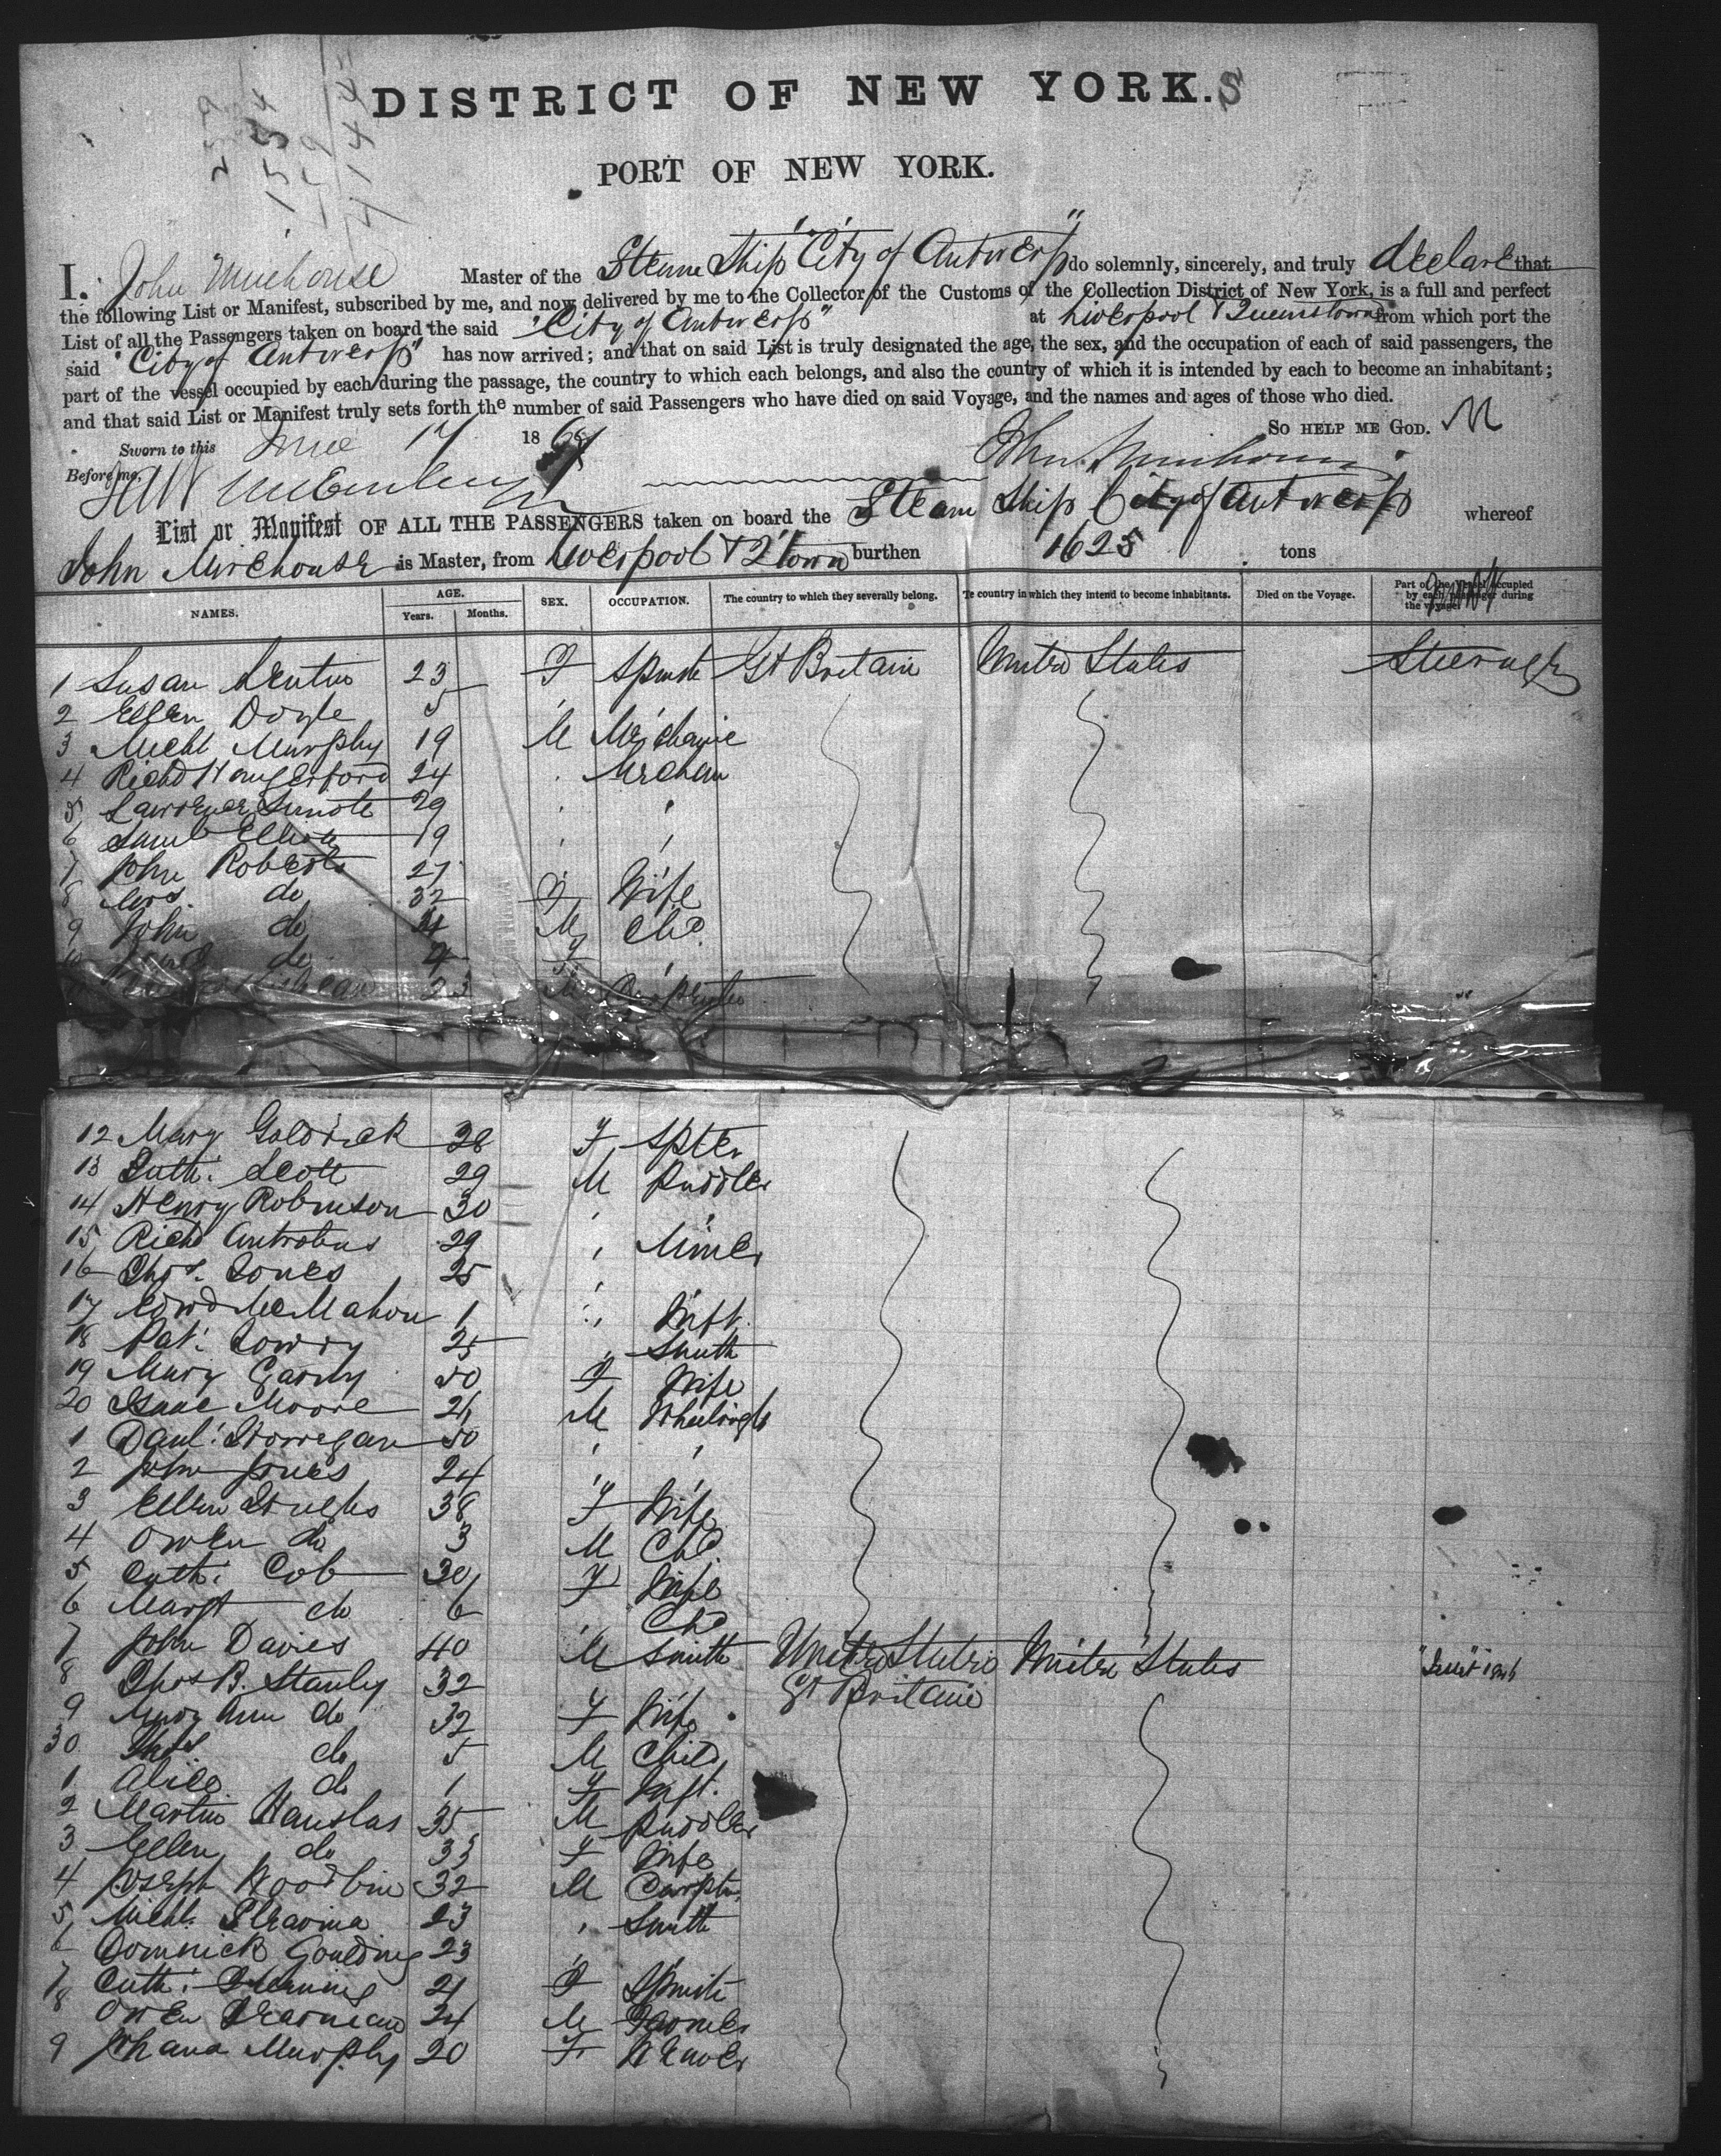 DISTRICT OF NEW YORK. S
PORT OF NEW YORK.
I, John Mirehouse Master of the Steam Ship "City of Antwerp" do solemnly, sincerely, and truly declare that
the following List or Manifest, subscribed by me, and now delivered by me to the Collector of the Customs of the Collection District of New York, is a full and perfect
List of all the Passengers taken on board the said "City of Antwerp" at Liverpool & Queenstown from which port the
said "City of Antwerp" has now arrived; and that on said List is truly designated the age, the sex, and the occupation of each of said passengers, the
part of the vessel occupied by each during the passage, the country to which each belongs, and also the country of which it is intended by each to become an inhabitant;
and that said List or Manifest truly sets forth the number of said Passengers who have died on said Voyage, and the names and ages of those who died.
Sworn to this June 17 186 SO HELP ME GOD. M
Before me, John Mirehouse
List or Manifest OF ALL THE PASSENGERS taken on board the Steam Ship City of Antwerp whereof
John Mirehouse is Master, from Liverpool & Q'town burthen 1625 tons
NAMES. AGE. Years. Months. SEX. OCCUPATION. The country to which they severally belong. Te country in which they intend to become inhabitants. Died on the Voyage. Part of the Vessel occupied by each passenger during the voyage.
1 Susan 23 F Spinste Gt Britain United States Steerage
2 Ellen Doyle 5 "
3 Michl Murphy 19 M Mechanic
4 Richd Hungerford 24 " Mechan
5 Lawrence 29 " "
6 Saml Elliott 19 " "
7 John Roberts 27 " "
8 Mrs. do 32 F Wife
9 John do M Chd.
10 do F "
11 23 M Carpenter
12 Mary Goldrick 28 F Spter
13 Cath: Scott 29 M Puddler
14 Henry Robinson 30 " "
15 Richd Antrobus 29 " Miner
16 Thos. Jones 25 " "
17 Edwd McMahon 1 " Inft.
18 Pat: Lowry 25 " Smith
19 Mary Garity 50 F Wife
20 Isaac Moore 21 M Wheelright
1 Danl: Horregan 50 " "
2 John Jones 24 " "
3 Ellen Hughs 38 F Wife
4 Owen do 3 M Chd
5 Cath: Cob 30 F Wife
6 Margt do 6 " Chd
7 John Davies 40 M Smith United States United States
8 Thos B. Stanley 32 Gt Britain
9 Mary Ann do 32 F Wife
30 Thos do 5 M Child
1 Alice do 1 F Inft.
2 Martin Hanslas 35 M Puddler
3 Ellen do 33 F Wife
4 Joseph Woodbine 32 M Carptr.
5 Michl. 23 " Smith
6 Domnick Goulding 23 " "
7 Cath: 21 F Spinste
8 Owen 24 M Farmer
9 Johana Murphy 20 F Weaver